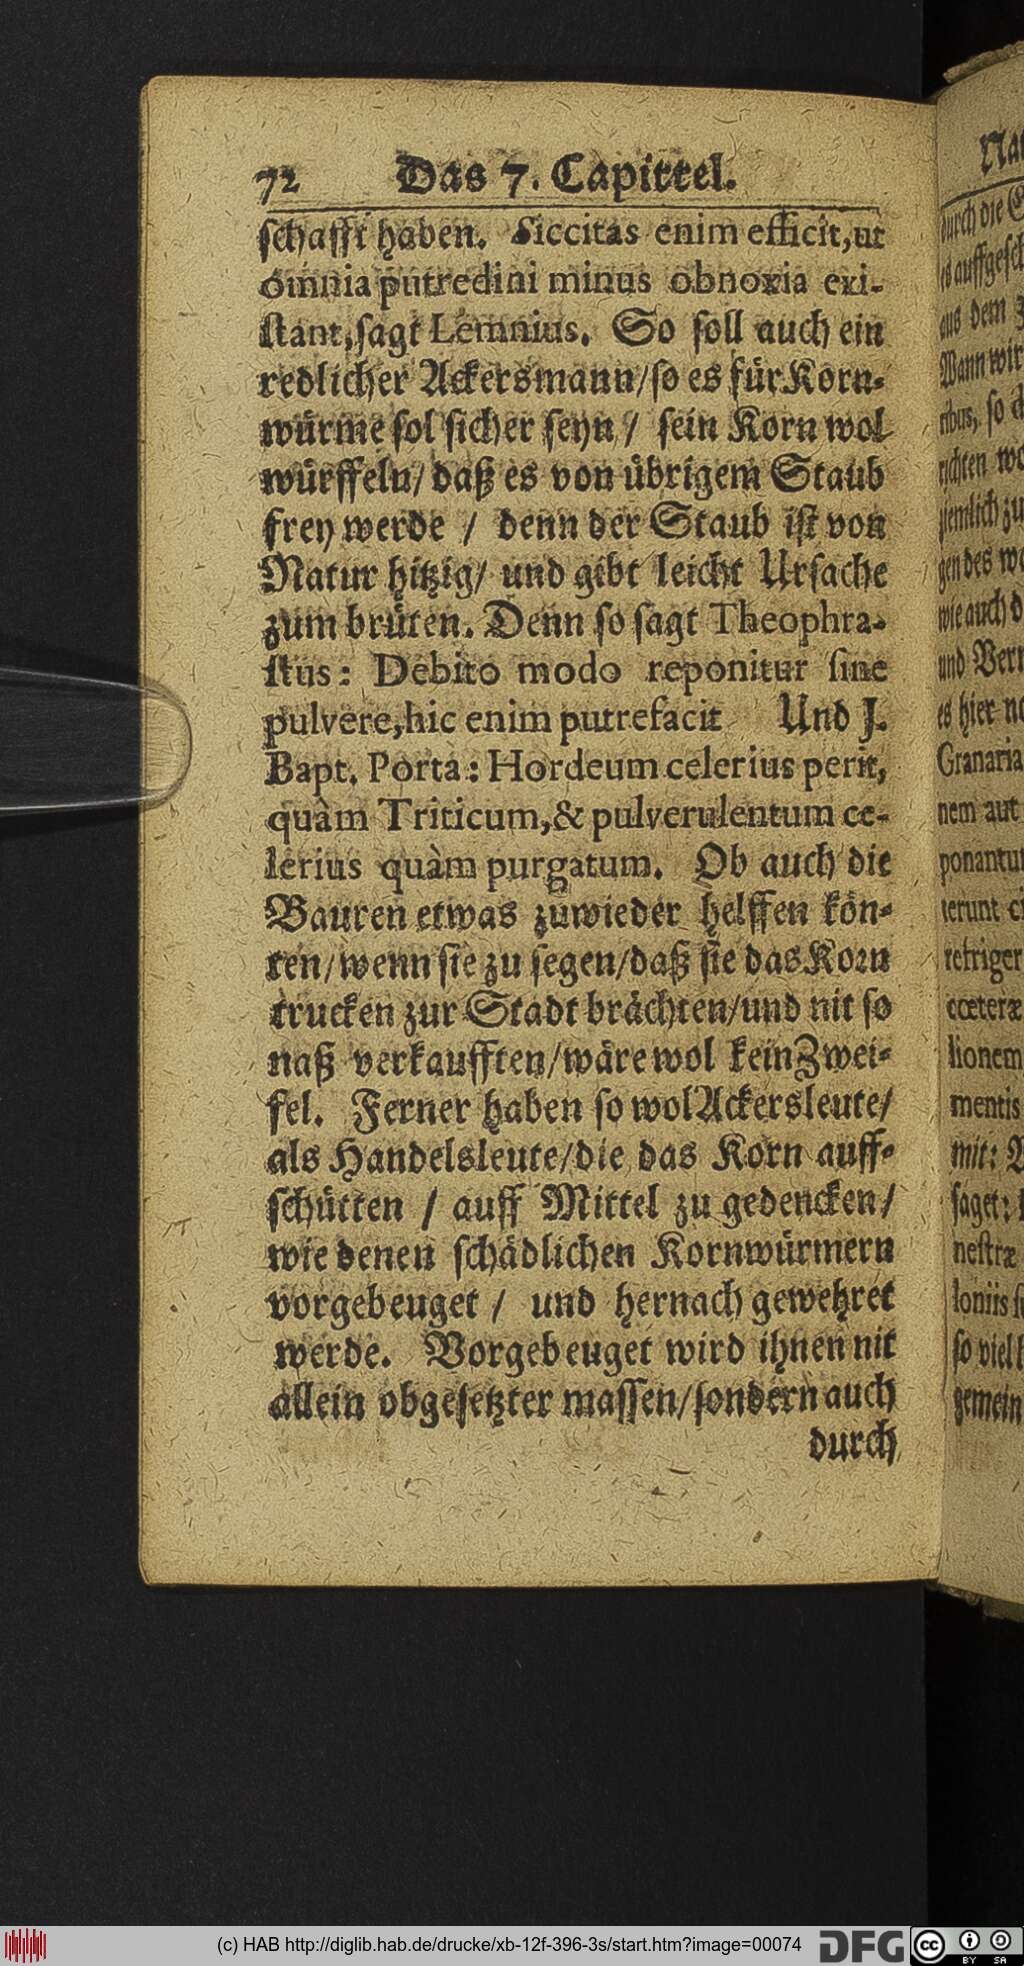 72 Das 7. Capittel.
schafft haben. Siccitas enim efficit, ut
omnia putredini minus obnoxia exi-
stant, sagt Lemnius. So soll auch ein
redlicher Ackersmann/ so es für Korn-
würme sol sicher seyn/ sein Korn wol
würffeln/ daß es von übrigem Staub
frey werde / denn der Staub ist von
Natur hitzig/ und gibt leicht Ursache
zum brüten. Denn so sagt Theophra-
stus: Debito modo reponitur sine
pulvere, hic enim putrefacit Und J.
Bapt. Porta: Hordeum celerius perit,
quàm Triticum, & pulverulentum ce-
lerius quàm purgatum. Ob auch die
Bauren etwas zuwieder helffen kön-
ten/ wenn sie zu segen/ daß sie das Korn
trucken zur Stadt brächten/ und nit so
naß verkaufften/ wäre wol kein Zwei-
fel. Ferner haben so wol Ackersleute/
als Handelsleute/ die das Korn auff-
schütten / auff Mittel zu gedencken/
wie denen schädlichen Kornwürmern
vorgebeuget / und hernach gewehret
werde. Vorgebeuget wird ihnen nit
allein obgesetzter massen/ sondern auch
durch
durch die
es auffgesch
aus dem
Wann wir
ribus, so
richten
ziemlich zu
gen des
wie auch
und
es hier
Granaria
nem aut
ponantur
terunt
refriger
cœteræ
lionem
mentis
mit:
saget:
nestræ
loniis
so viel
gemein
(c) HAB http://diglib.hab.de/drucke/xb-12f-396-3s/start.htm?image=00074
DFG
cc BY SA